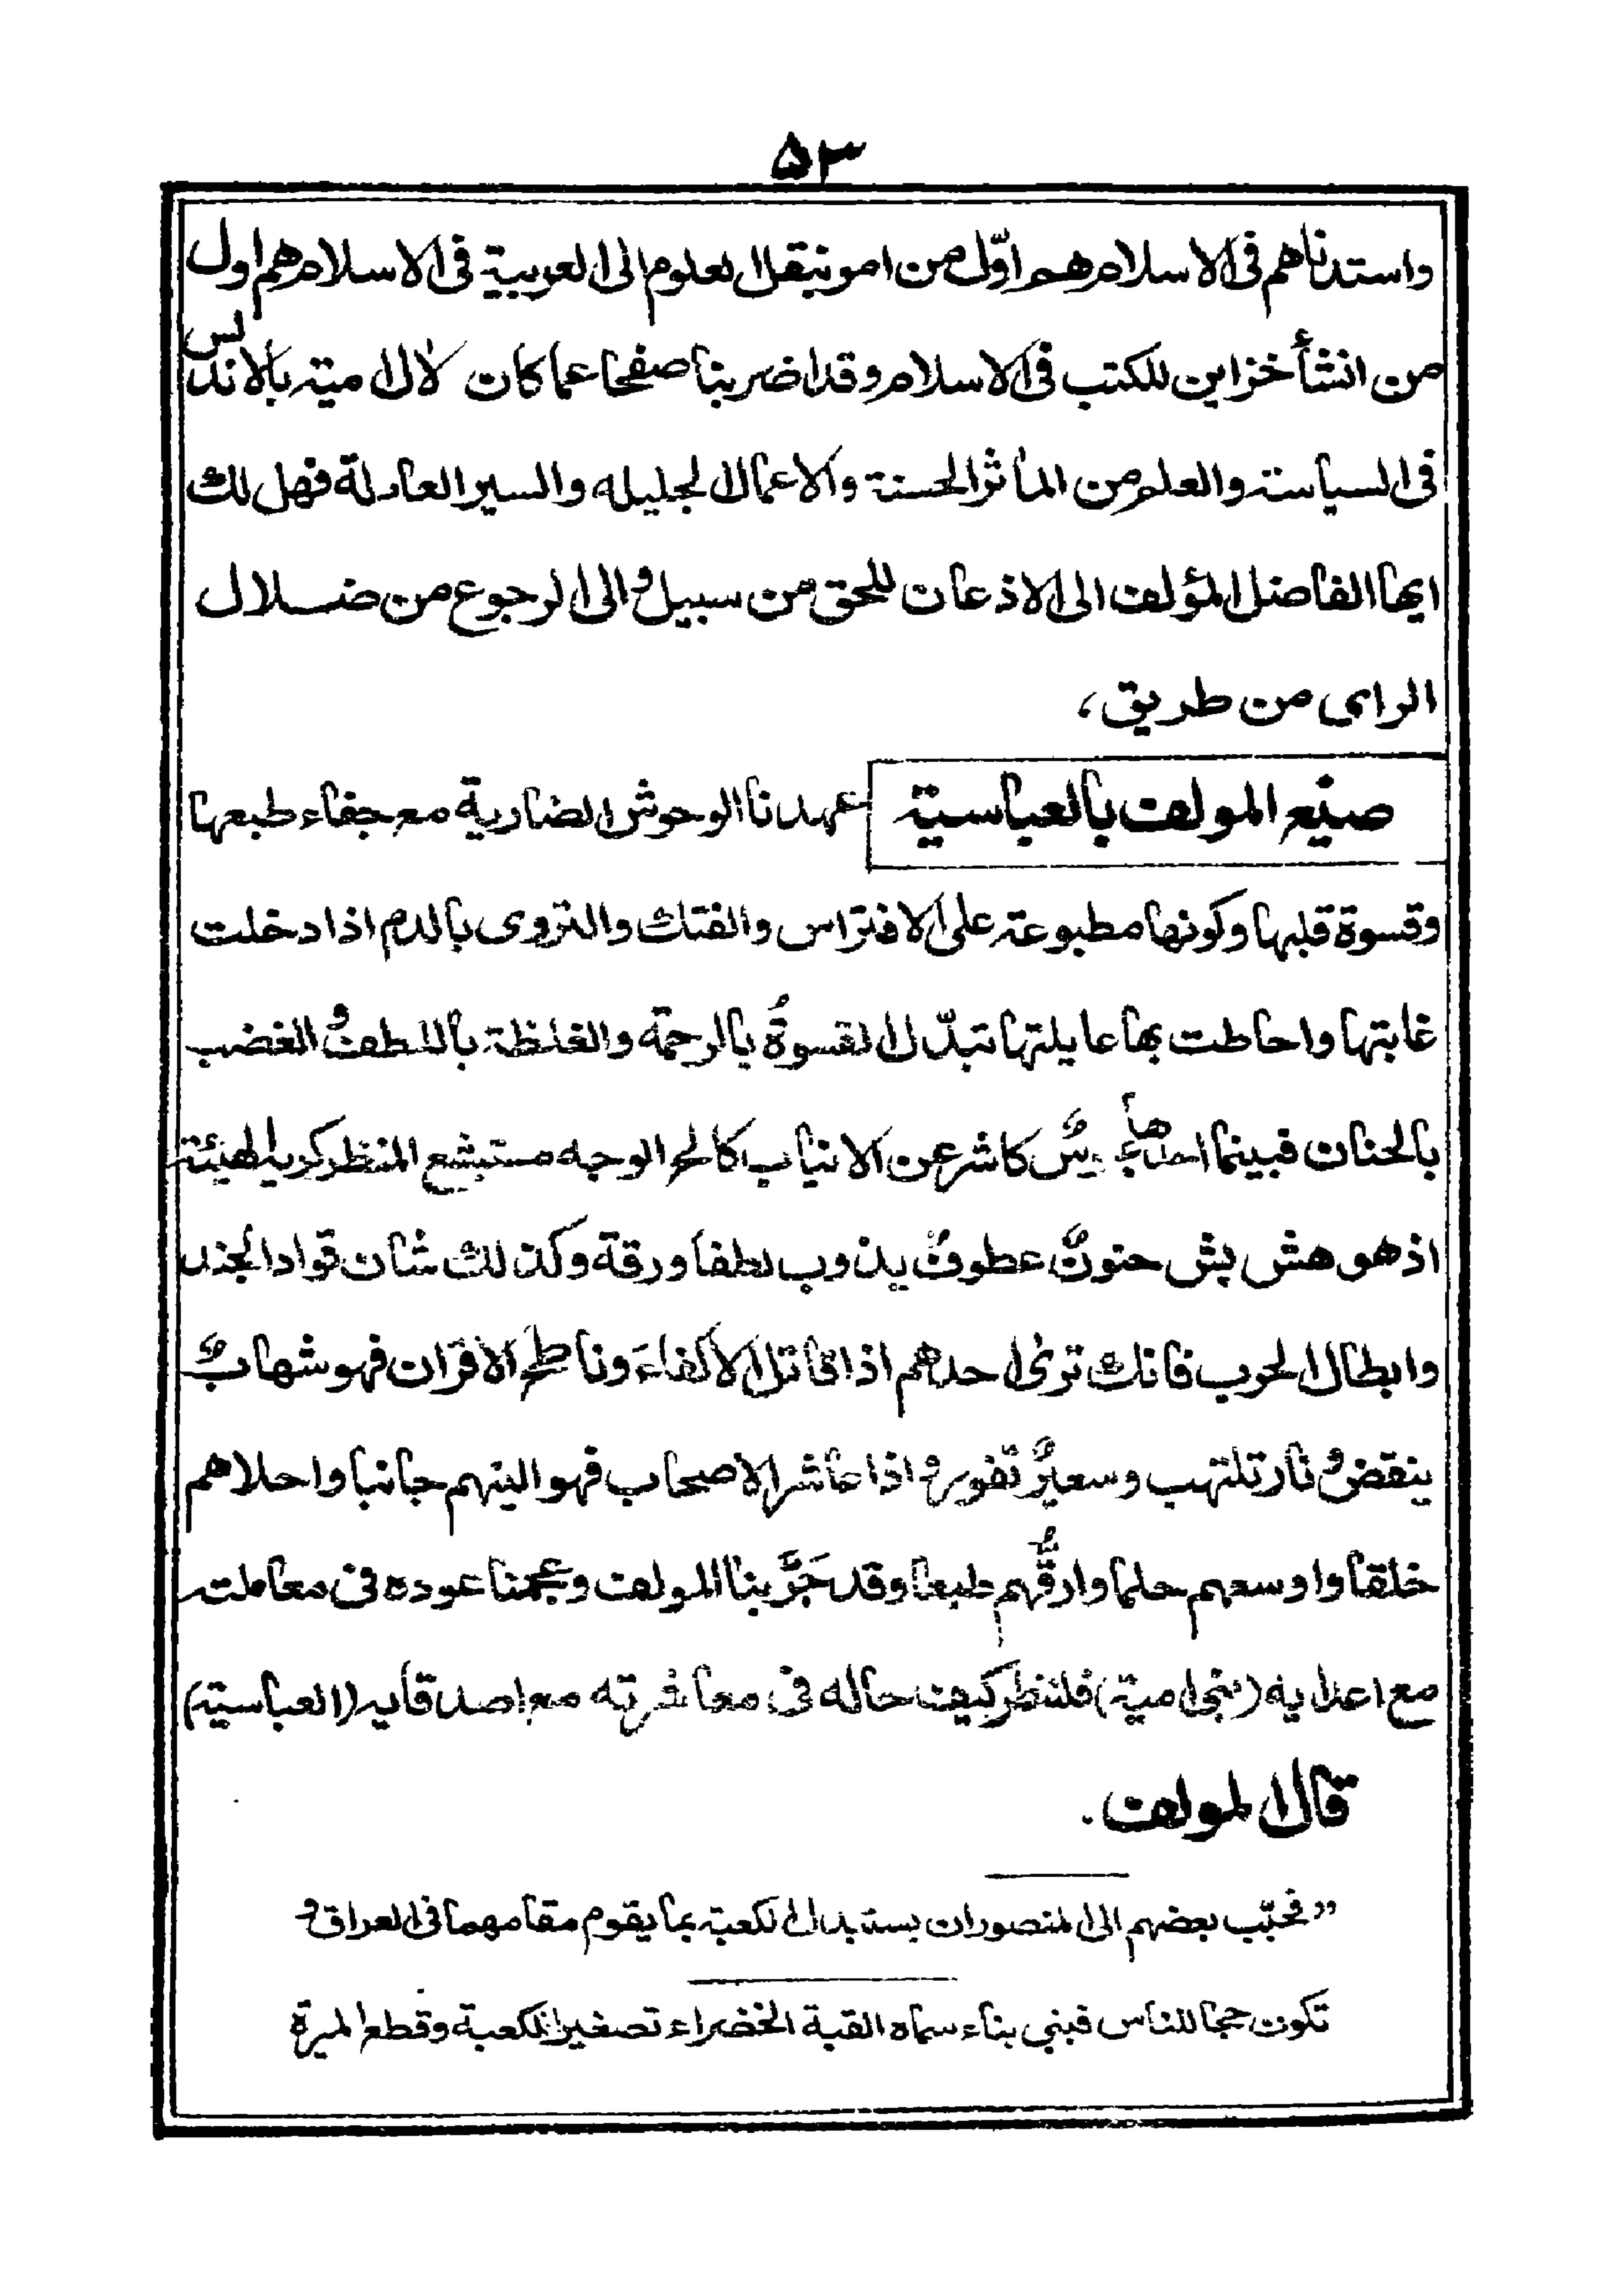 ۵۳
واستدناهم فی الاسلام هم اوّل من امو نبقل العلوم الی العربیة فی الاسلام هم اول
من انشأ خزاین للکتب فی الاسلام وقد اضربنا صفحا عما کان لاٰل امیة بالاندلس
فی السیاسة والعلم من المآثر الحسنة والاعمال الجلیله والسیر العادلة فهل لك
ایها الفاضل المؤلف الی الاذعان للحق من سبیل والی الرجوع من ضلال
الرای من طریق،
صنیع المولف بالعباسیة عهدنا الوحوش الضاریة مع جفاء طبعها
وقسوة قلبها وکونها مطبوعة علی الافتراس والفتك والتروی بالدم اذا دخلت
غابتها واحاطت بها عایلتها تبدّل القسوةُ بالرحمة والغلظة باللطف والغضب
بالحنان فبینما احدها کاشر عن الانیاب کالح الوجه مستبشع المنظر کریه الهیئة
اذ هو هش بش حنونٌ عطوفٌ یذوب لطفا ورقة وکذلك شان قواد الجند
وابطال الحرب فانك تریٰ احدهم اذا قاتل الاکفاءَ وناطح الاقران فهو شهابٌ
ینقض ونار تلتهب وسعیرٌ تفور واذا عاشر الاصحاب فهو الینهم جانبا واحلاهم
خلقا واوسعهم حلما وارقُّهم طبعا وقد جَرَّبنا المولف وعجمنا عوده فی معاملته
مع اعدایه (بنی امیة) فلننظر کیف حاله فی معاشرته مع اصدقایه (العباسیة)
قال المولف.
”فحبّب بعضهم الی المنصور ان یستبدل الکعبة بما یقوم مقامهما فی العراق و
تکون حجا للناس فبنی بناء سماه القبة الخضراء تصغیرا للکعبة وقطع المیرة